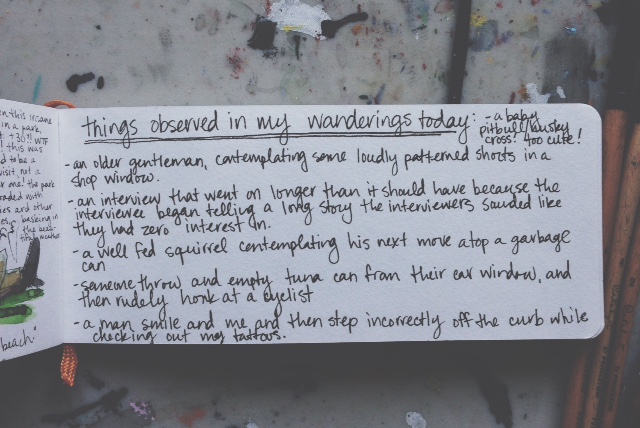 en this insane
in a park,
+30?! WTF
! this was
d to be a
visit, not a
r one! the park
raded with
ies and other
basking in
weather
beach"
things observed in my wanderings today:
- a baby
pitbull/husky
cross! too cute!
- an older gentleman, contemplating some loudly patterned shorts in a
shop window.
- an interview that went on longer than it should have because the
interviewee began telling a long story the interviewers sounded like
they had zero interest in.
- a well fed squirrel contemplating his next move atop a garbage
can
- someone throw and empty tuna can from their car window, and
then rudely honk at a cyclist
- a man smile and me and then step incorrectly off the curb while
checking out my tattoos.